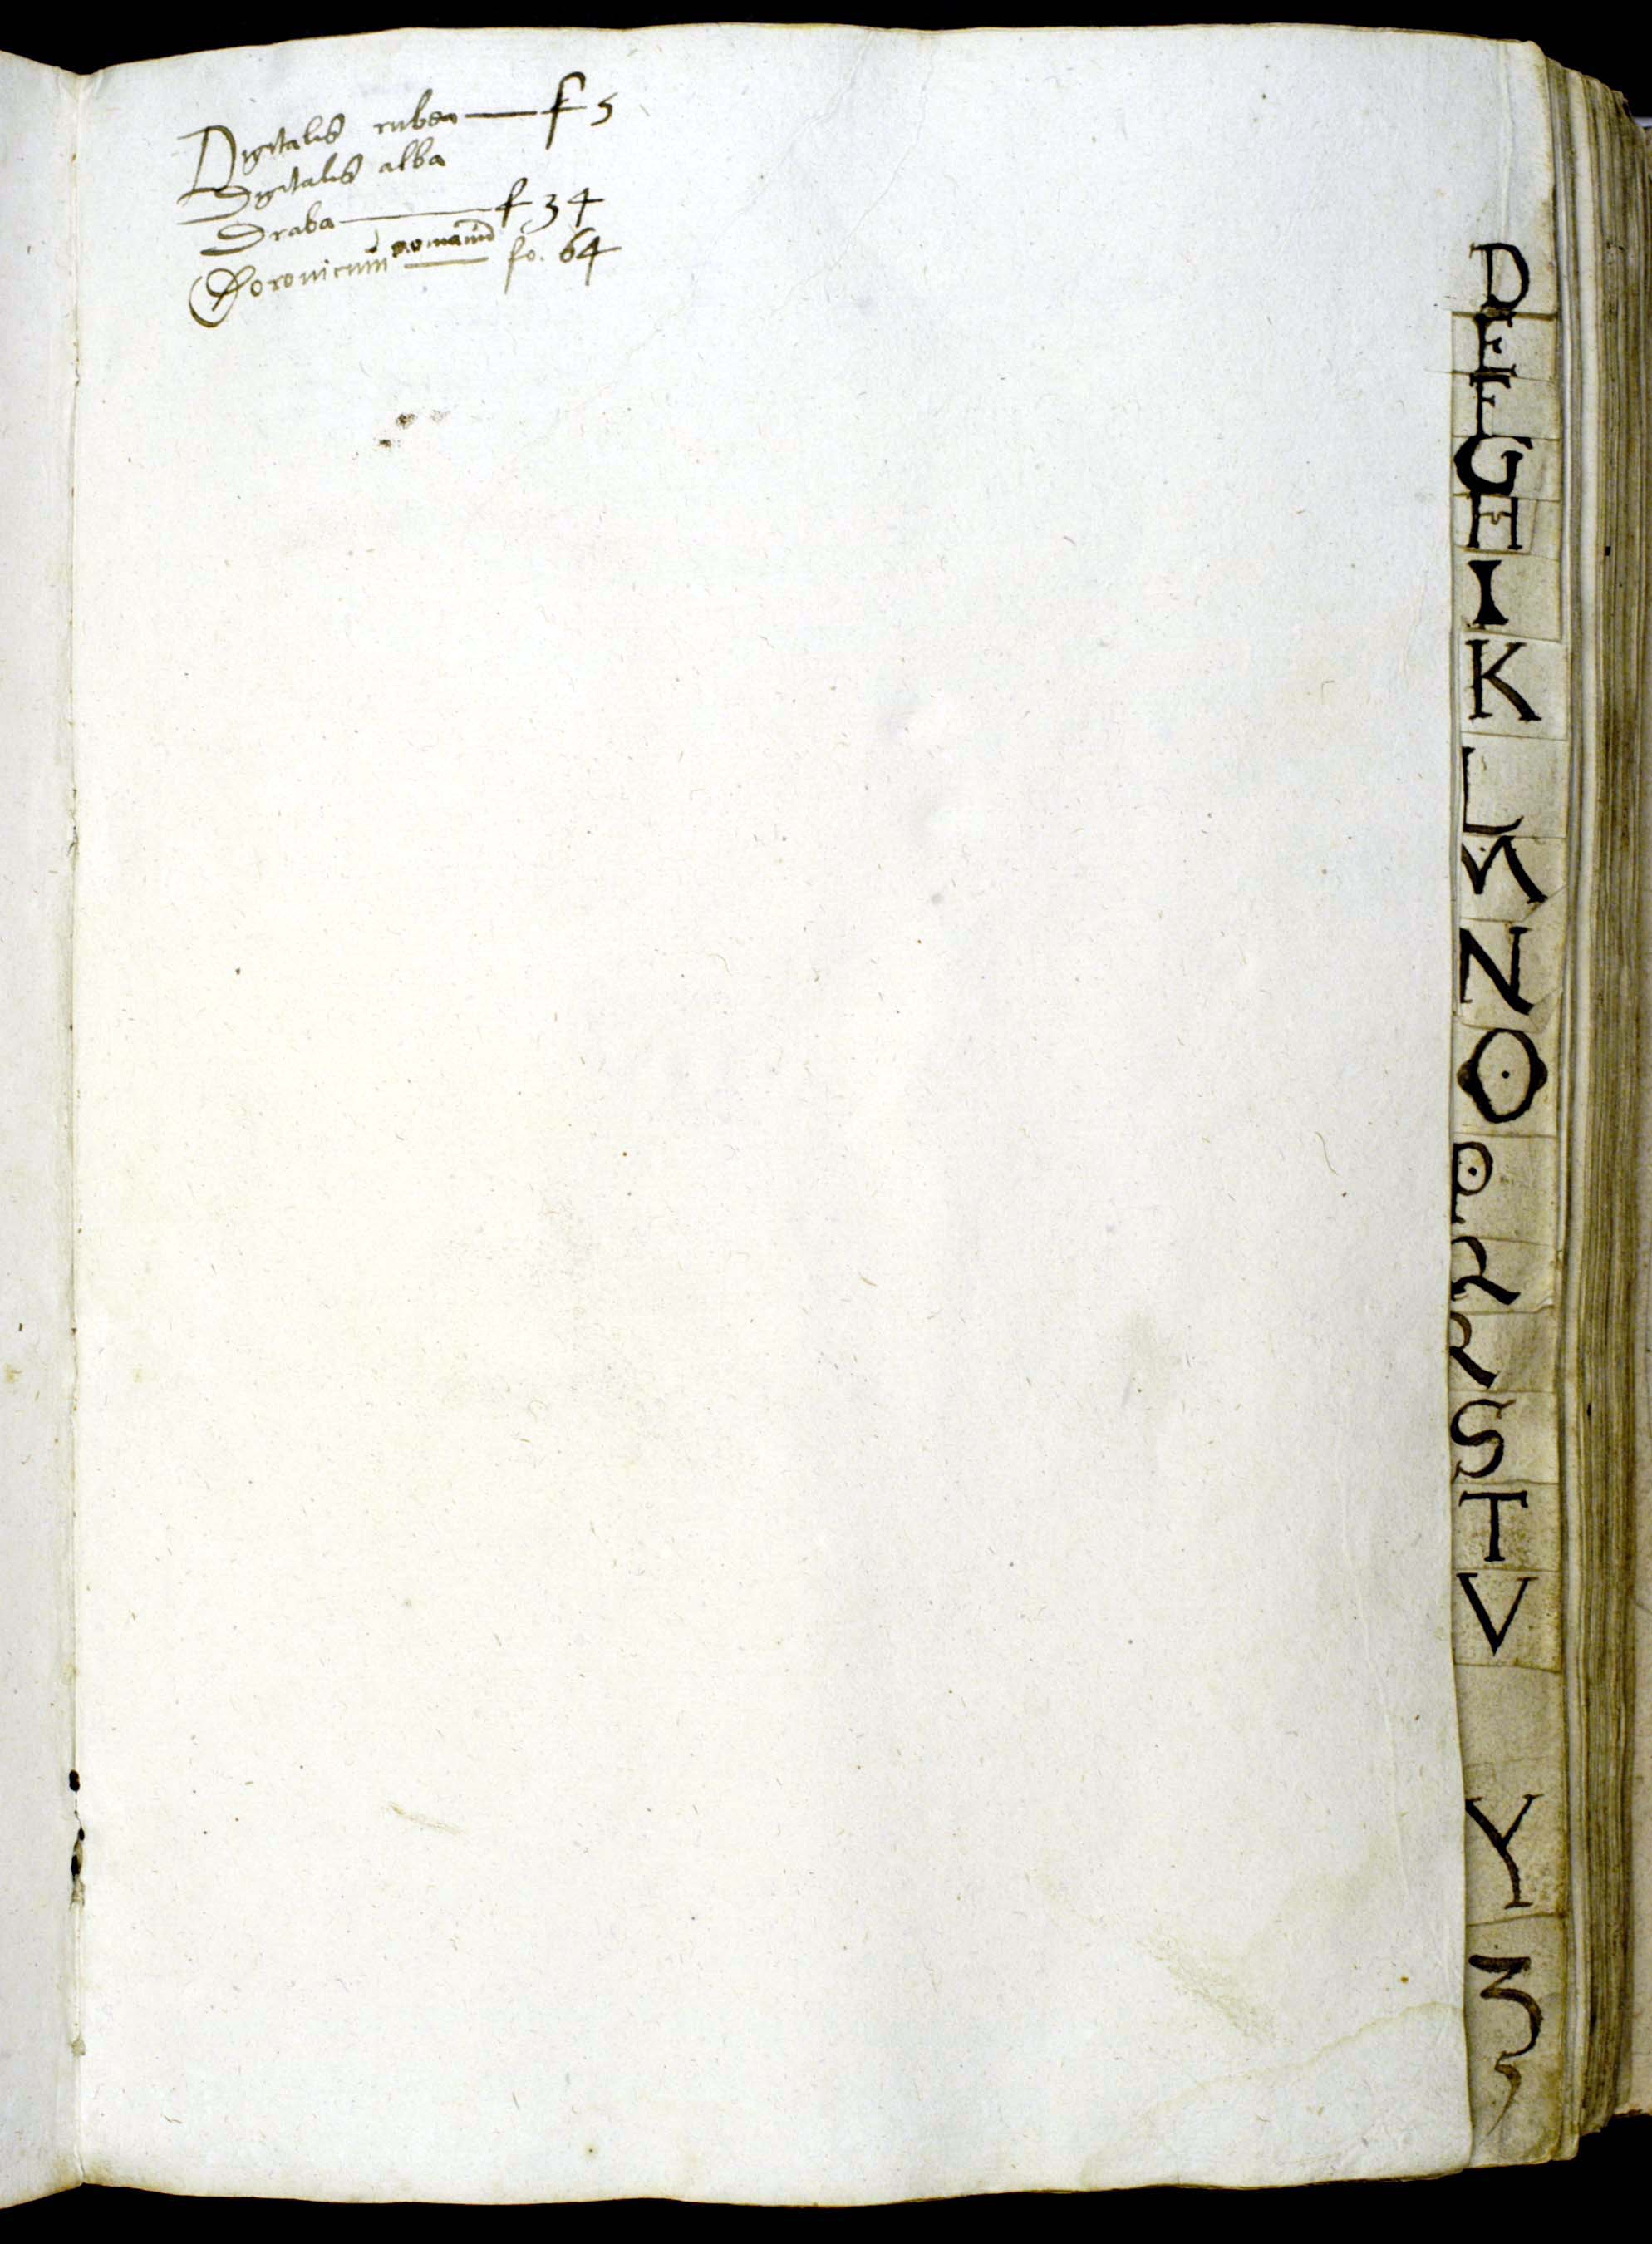 Digitalis rubea — f 5
Digitalis alba
Draba — f 34
Doronicum — fo. 64
D
E
F
G
H
I
K
L
M
N
O
P
Q
R
S
T
V
Y
Z